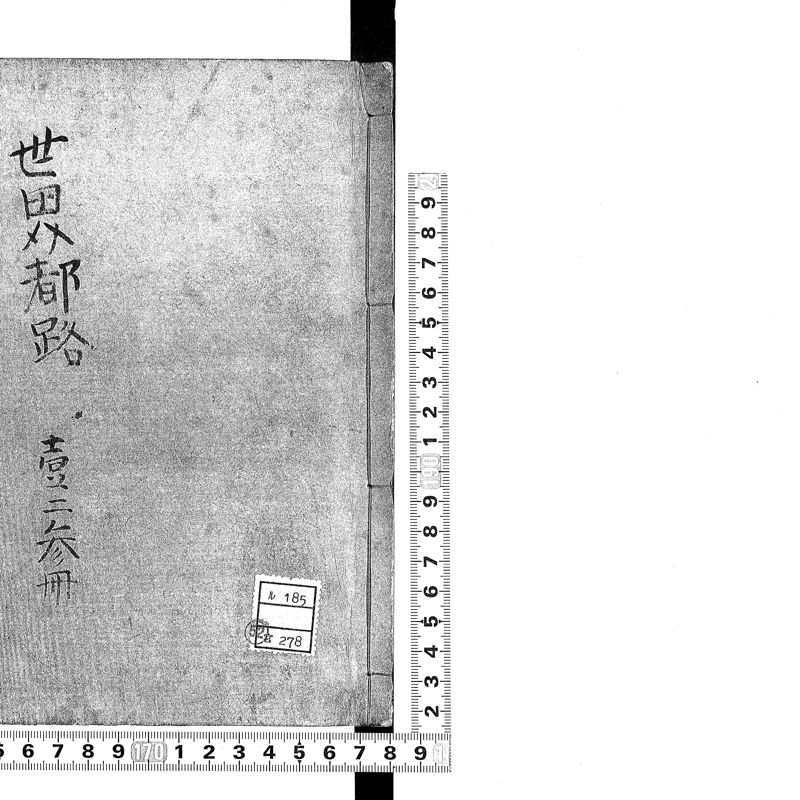 世界都路
壹二参冊
ル 185
278
9
8
7
6
5
4
3
2
1
190
9
8
7
6
5
4
3
2
6 7 8 9 170 1 2 3 4 5 6 7 8 9